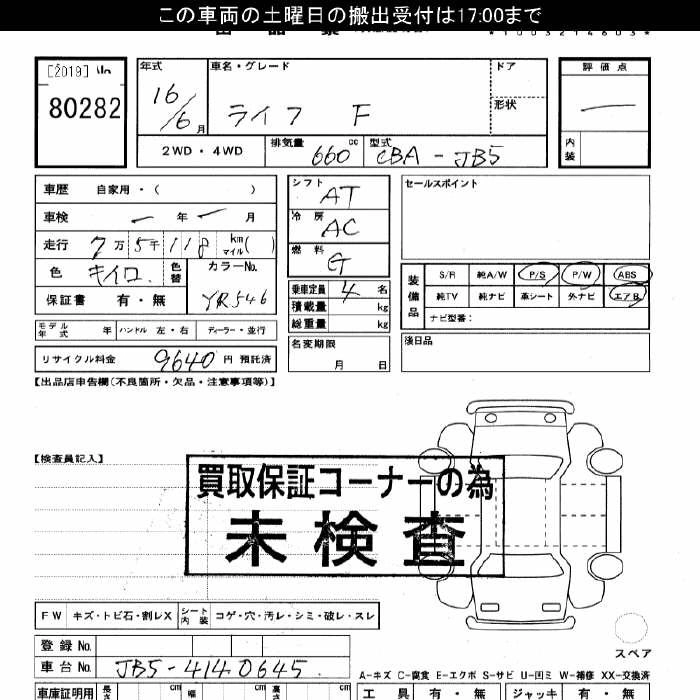 この車両の土曜日の搬出受付は17:00まで
*1003214603*
[2019] No
80282
年式 車名・グレード ドア 評価点
16/6月 ライフ F 形状 —
2WD・4WD 排気量 660cc 型式 CBA-JB5 内装
車歴 自家用・( )
車検 — 年 — 月
走行 7万5千118 km マイル( )
色 キイロ 色替 カラーNo.
YR546
保証書 有・無
シフト AT
冷房 AC
燃料 G
乗車定員 4名
積載量 kg
総重量 kg
名変期限
月 日
セールスポイント
装備品 S/R 純A/W P/S P/W ABS
純TV 純ナビ 革シート 外ナビ エアB
ナビ型番:
モデル年式 年 ハンドル 左・右 ディーラー・並行
リサイクル料金 9640円 預託済
瑕日品
【出品店申告欄(不良箇所・欠品・注意事項等)】
【検査員記入】
買取保証コーナーの為
未検査
FW キズ・トビ石・割レX シート内装 コゲ・穴・汚レ・シミ・破レ・スレ
スペア
登録No.
車台No. JB5-4140645
A-キズ C-腐食 E-エクボ S-サビ U-凹ミ W-補修 XX-交換済
車庫証明用 長さ cm 幅 cm 高さ cm 工具 有・無 ジャッキ 有・無